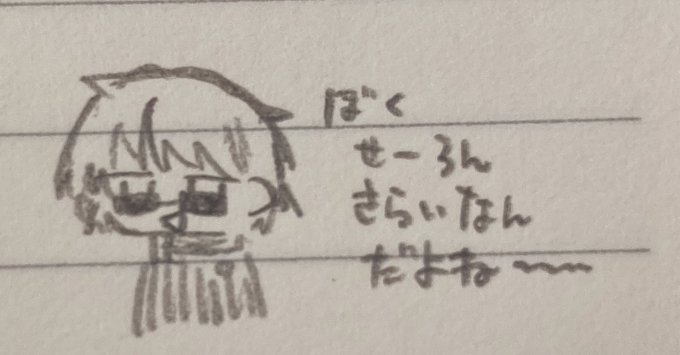 ぼく
せーろん
きらいなん
だよね〜〜